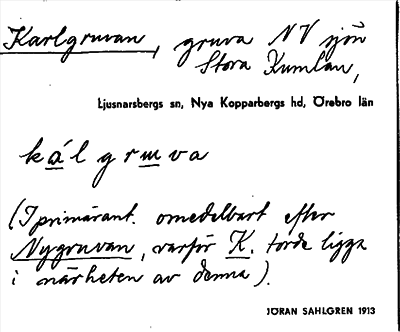 Karlgruvan, gruva NV sjön
Stora Kumlan,
Ljusnarsbergs sn, Nya Kopparbergs hd, Örebro län
kálgruva
(I primärant. omedelbart efter
Nygruvan, varför K. torde ligga
i närheten av denna).
JÖRAN SAHLGREN 1913